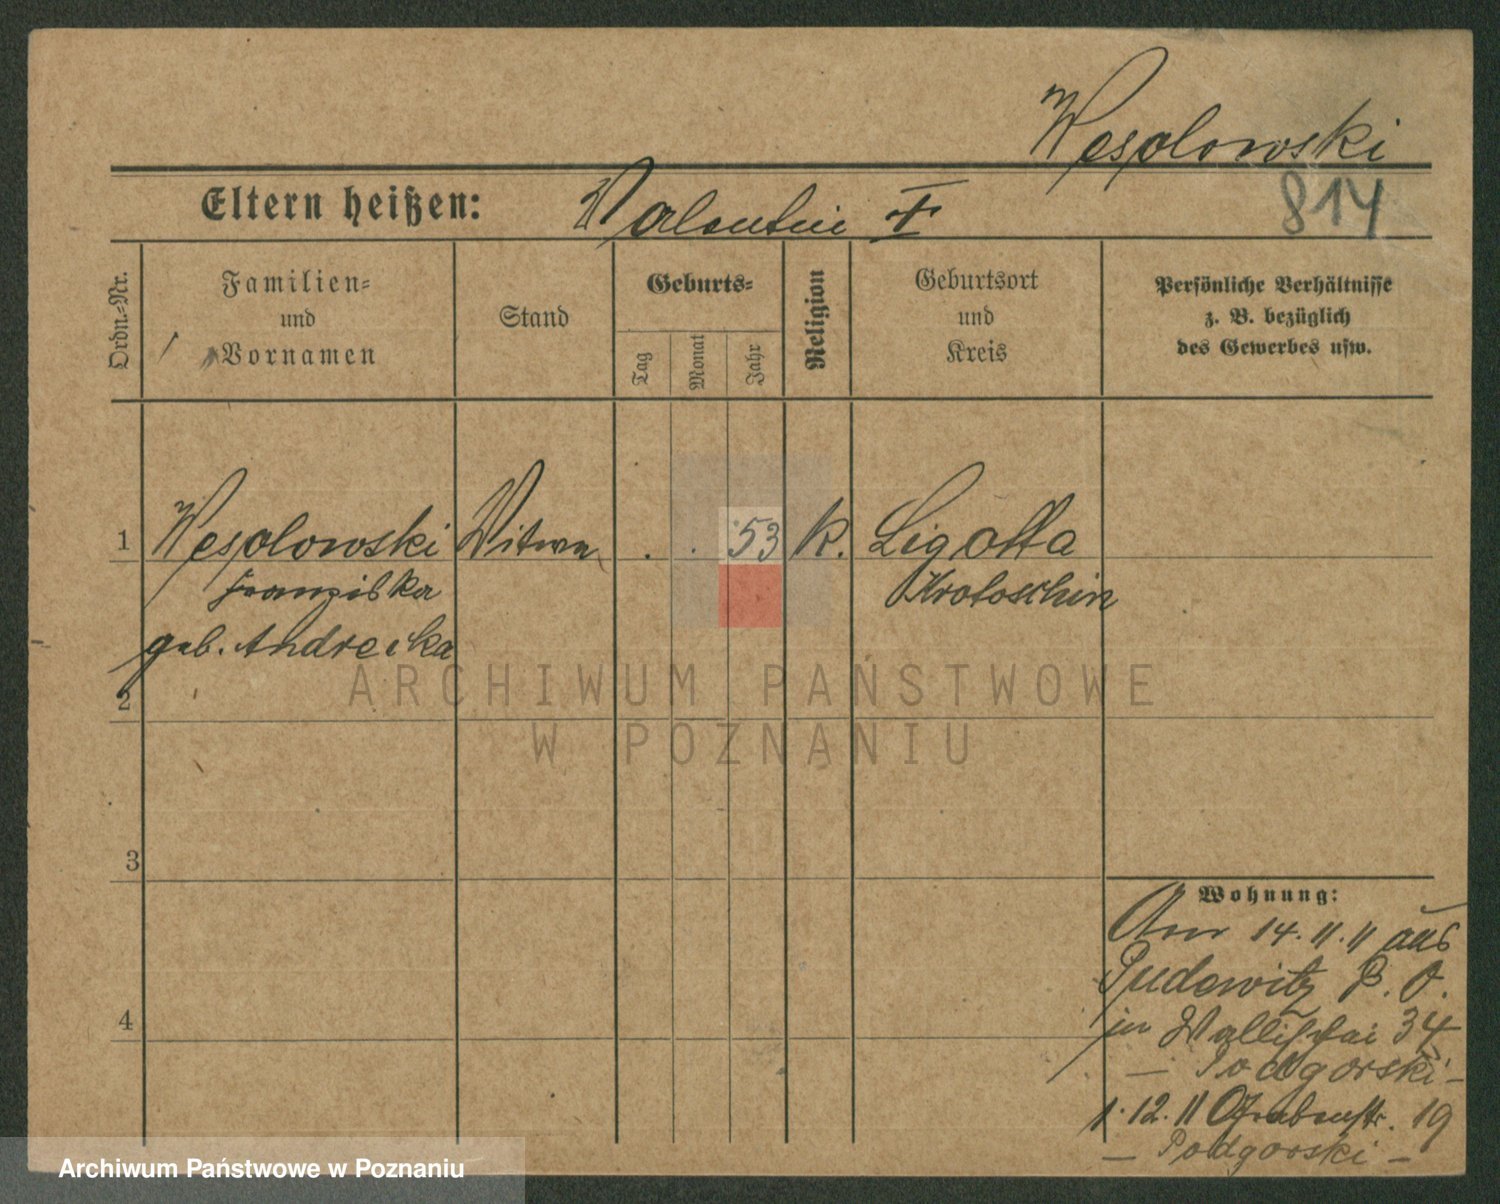 Wesolowski
814
Eltern heißen: Valentin †
Ordn.=Nr.
Familien=
und
Vornamen
Stand
Geburts=
Tag
Monat
Jahr
Religion
Geburtsort
und
Kreis
Persönliche Verhältnisse
z. B. bezüglich
des Gewerbes usw.
1 Wesolowski Witwe . . 53 k. Ligotta
Franziska Krotoschin
geb. Andrecka
2
3
4
Wohnung:
Am 14.11.11 aus
Pudewitz P. O.
in Wallischei 34
— Podgorski —
1.12.11 Grabenstr. 19
— Podgorski —
ARCHIWUM PAŃSTWOWE
W POZNANIU
Archiwum Państwowe w Poznaniu